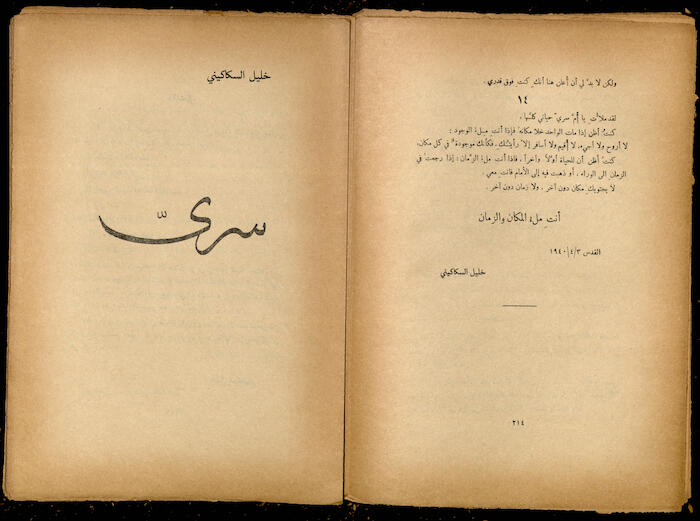 ولكن لا بدّ لي أن أعلن هنا أنكِ كنتِ فوق قدري .
١٤
لقد ملأتِ يا أمّ سري حياتي كلّها .
كنتُ أظن إذا مات الواحد خلا مكانه فإذا أنتِ مِلءُ الوجود :
لا أروح ولا أجيء، لا أقيم ولا أسافر إلا رأيتكِ، فكأنك موجودة في كل مكان.
كنتُ أظن أن للحياة أوّلاً وآخراً، فاذا أنتِ ملءُ الزمان : إذا رجعتُ في
الزمان الى الوراء، أو ذهبت فيه إلى الأمام فانتِ معي .
لا يحتويكِ مكان دون آخر ، ولا زمان دون آخر .
أنتِ ملءُ المكان والزمان
القدس ١٩٤٠/٤/٣
خليل السكاكيني
٢١٤
خليل السكاكيني
سريّ